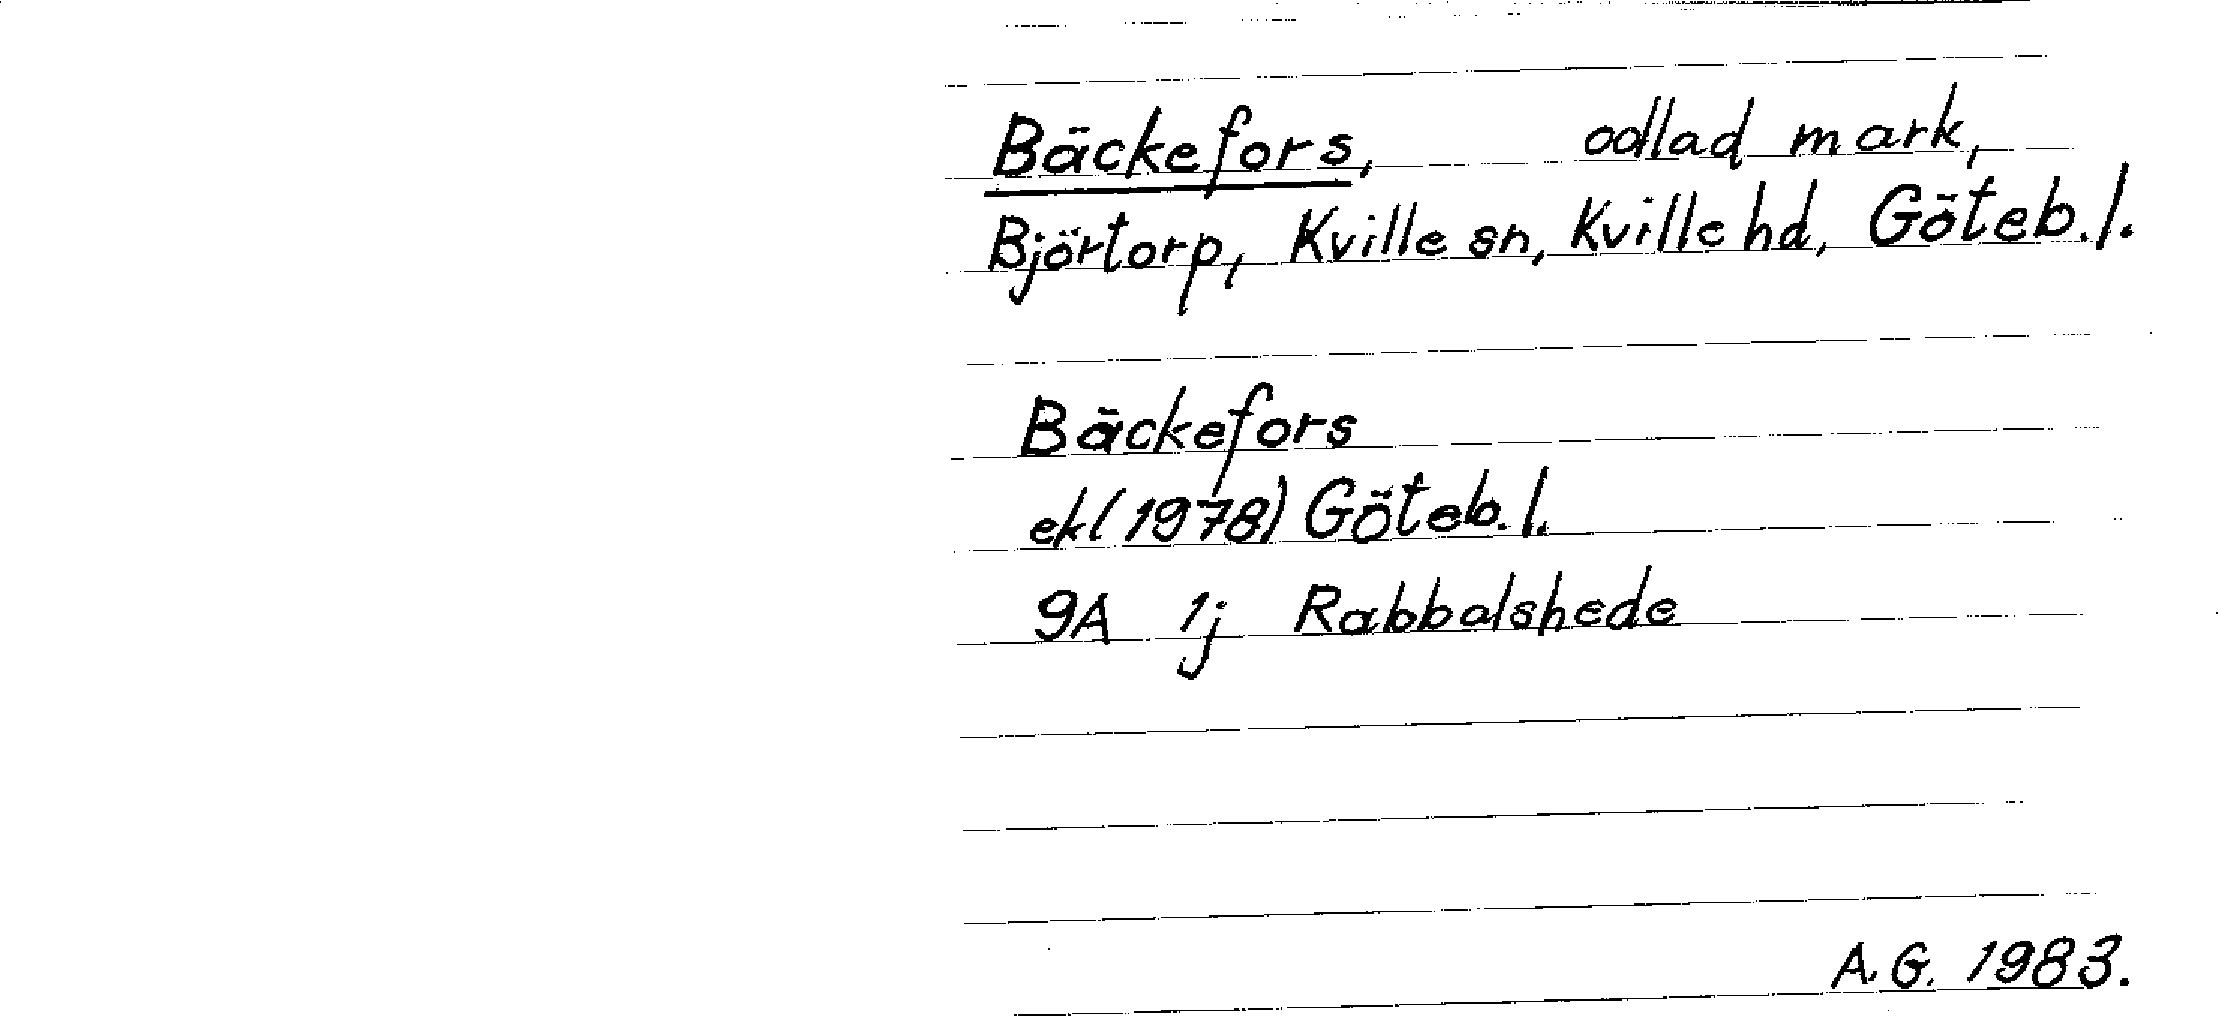 Bäckefors, odlad mark,
Björtorp, Kville sn, Kville hd, Göteb. l.
Bäckefors
ekl (1978) Göteb. l.
9A 1j Rabbalshede
A.G. 1983.